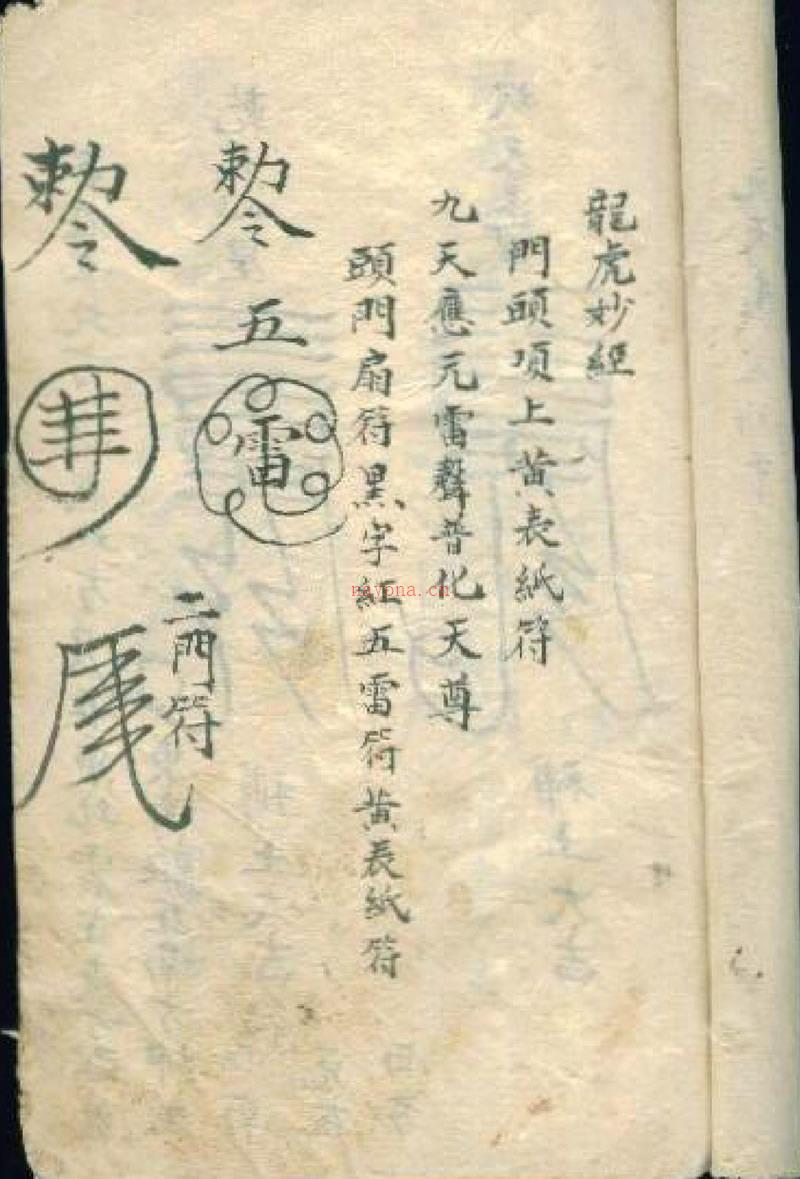 龍虎妙經
門頭項上黄表紙符
九天應元雷聲普化天尊
頭門扇符黑字紅五雷符黄表紙符
敕令
五
雷
二門符
敕令
nayona.cn